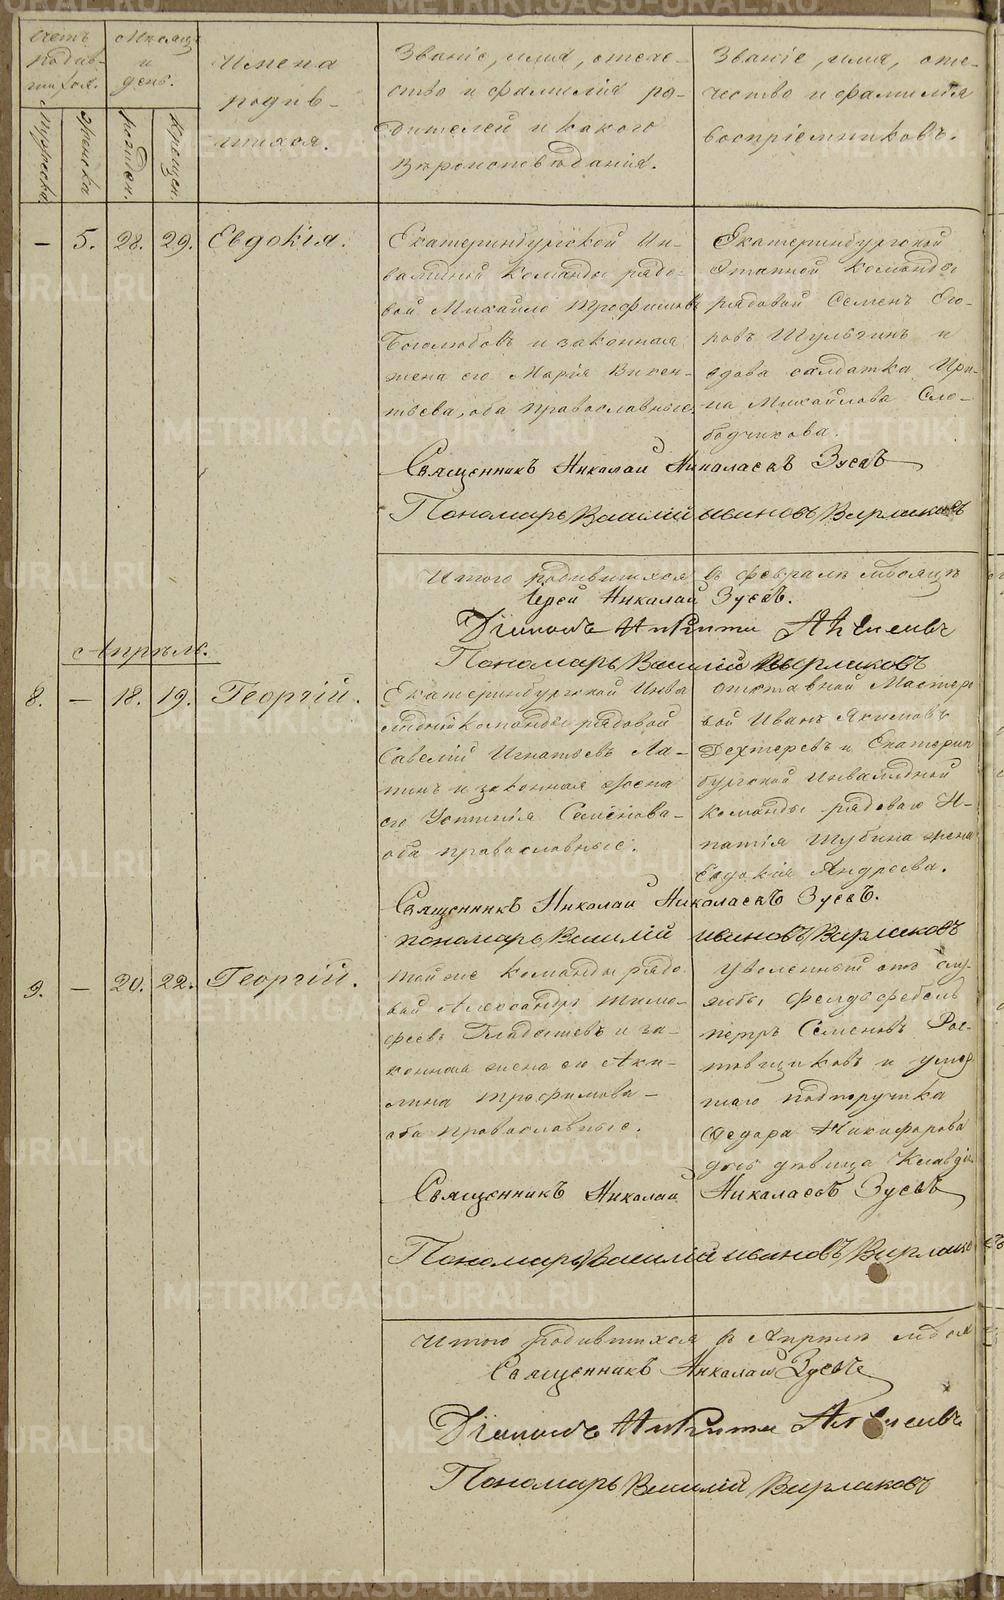 Счетъ родив-шихся.
Мѣсяцъ и день.
Имена родив-шихся.
Званіе, имя, отече-
ство и фамилія ро-
дителей и какого
вѣроисповѣданія.
Званіе, имя, оте-
чество и фамилія
воспріемниковъ.
Мужеска
Женска
рожден.
крещен.
— 5. 28. 29. Евдокія.
Екатеринбургской Ин-
валидной команды рядо-
вой Михайло Трофимовъ
Боголюбовъ и законная
жена его Марія Викен-
тьева, оба православные.
Екатеринбургской
Этапной команды
рядовой Семенъ Его-
ровъ Шульгинъ и
вдова солдатка Ири-
на Михайлова Сло-
бодчикова.
Священникъ Николай Николаевъ Зуевъ
Пономарь Василій Ивановъ Вырлаковъ
Итого родившихся въ февралѣ мѣсяцѣ
Іерей Николай Зуевъ.
Діаконъ Никита
Пономарь Василій Вырлаковъ
Апрѣль.
8. — 18. 19. Георгій.
Екатеринбургской Инва
лидной команды рядовой
Савелій Игнатьевъ Ла-
пинъ и законная жена
его Устинія Семенова-
оба православные.
отставной Мастер
вой Иванъ Якимовъ
Дехтеревъ и Екатерин
бургской Инвалидной
команды рядоваго И-
патія Шубина жена
Евдокія Андреева.
Священникъ Николай Николаевъ Зуевъ.
пономарь Василій Ивановъ Вырлаковъ
9. — 20. 22. Георгій.
той же команды рядо
вой Александръ Тимо-
феевъ Гладышевъ и за-
конная жена его Аки-
лина Трофимова-
оба православные.
Уволенный отъ слу-
жбы фельдфебель
петръ Семеновъ Рос-
товщиковъ и умер
шаго подпоручика
Федора Никифорова
дочь дѣвица Клавдія
Священникъ Николай Николаевъ Зуевъ
Пономарь Василій Ивановъ Вырлаковъ
Итого родившихся въ Апрѣлѣ мѣсяц
Священникъ Николай Зуевъ
Діаконъ Никита
Пономарь Василій Вырлаковъ
METRIKI.GASO-URAL.RU